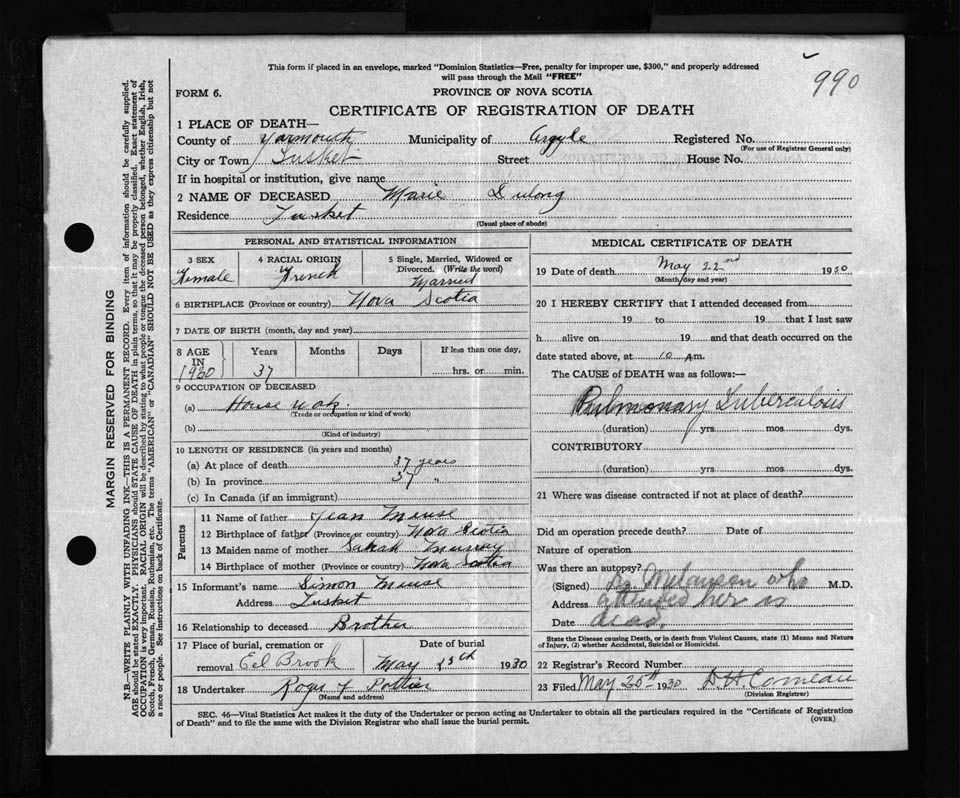 This form if placed in an envelope, marked "Dominion Statistics—Free, penalty for improper use, $300," and properly addressed
will pass through the Mail "FREE"
990
FORM 6.
PROVINCE OF NOVA SCOTIA
CERTIFICATE OF REGISTRATION OF DEATH
1 PLACE OF DEATH—
County of Yarmouth Municipality of Argyle Registered No.
(For use of Registrar General only)
City or Town Tusket Street House No.
If in hospital or institution, give name
2 NAME OF DECEASED Marie Dulong
Residence Tusket
(Usual place of abode)
PERSONAL AND STATISTICAL INFORMATION
3 SEX 4 RACIAL ORIGIN 5 Single, Married, Widowed or
Divorced. (Write the word)
Female French Married
6 BIRTHPLACE (Province or country) Nova Scotia
7 DATE OF BIRTH (month, day and year)
8 AGE Years Months Days If less than one day,
IN
1930 37 hrs. or min.
9 OCCUPATION OF DECEASED
(a) House
(Trade or occupation or kind of work)
(b)
(Kind of industry)
10 LENGTH OF RESIDENCE (in years and months)
(a) At place of death 37 years
(b) In province 37 "
(c) In Canada (if an immigrant)
Parents
11 Name of father Jean Meuse
12 Birthplace of father (Province or country) Nova Scotia
13 Maiden name of mother Sarah
14 Birthplace of mother (Province or country) Nova Scotia
15 Informant's name Simon Meuse
Address Tusket
16 Relationship to deceased Brother
17 Place of burial, cremation or Date of burial
removal Eel Brook May 25th 1930
18 Undertaker Roger Pottier
(Name and address)
MEDICAL CERTIFICATE OF DEATH
19 Date of death May 22nd 1930
(Month, day and year)
20 I HEREBY CERTIFY that I attended deceased from
19 to 19 that I last saw
h alive on 19 and that death occurred on the
date stated above, at 10 A m.
The CAUSE of DEATH was as follows:—
Pulmonary Tuberculosis
(duration) yrs. mos. dys.
CONTRIBUTORY
(duration) yrs. mos. dys.
21 Where was disease contracted if not at place of death?
Did an operation precede death? Date of
Nature of operation
Was there an autopsy?
(Signed) Dr. Melanson who M.D.
Address attended her is
Date dead.
State the Disease causing Death, or in death from Violent Causes, state (1) Means and Nature
of Injury, (2) whether Accidental, Suicidal or Homicidal.
22 Registrar's Record Number
23 Filed May 25th 1930 D H Comeau
(Division Registrar)
SEC. 46—Vital Statistics Act makes it the duty of the Undertaker or person acting as Undertaker to obtain all the particulars required in the "Certificate of Registration
of Death" and to file the same with the Division Registrar who shall issue the burial permit.
(OVER)
MARGIN RESERVED FOR BINDING
N.B.—WRITE PLAINLY WITH UNFADING INK—THIS IS A PERMANENT RECORD. Every item of information should be carefully supplied.
AGE should be stated EXACTLY. PHYSICIANS should STATE CAUSE OF DEATH in plain terms, so that it may be properly classified. Exact statement of
OCCUPATION is very important. RACIAL ORIGIN will be described by stating to what people or tongue the deceased person belonged, whether English, Irish,
Scotch, French, German, Russian, Ruthenian, etc. The terms "AMERICAN" or "CANADIAN" SHOULD NOT BE USED as they express citizenship but not
a race or people. See instructions on back of Certificate.